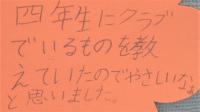 四年生にクラブ
でいるものを教
えていたのでやさしいなぁ
と思いました。